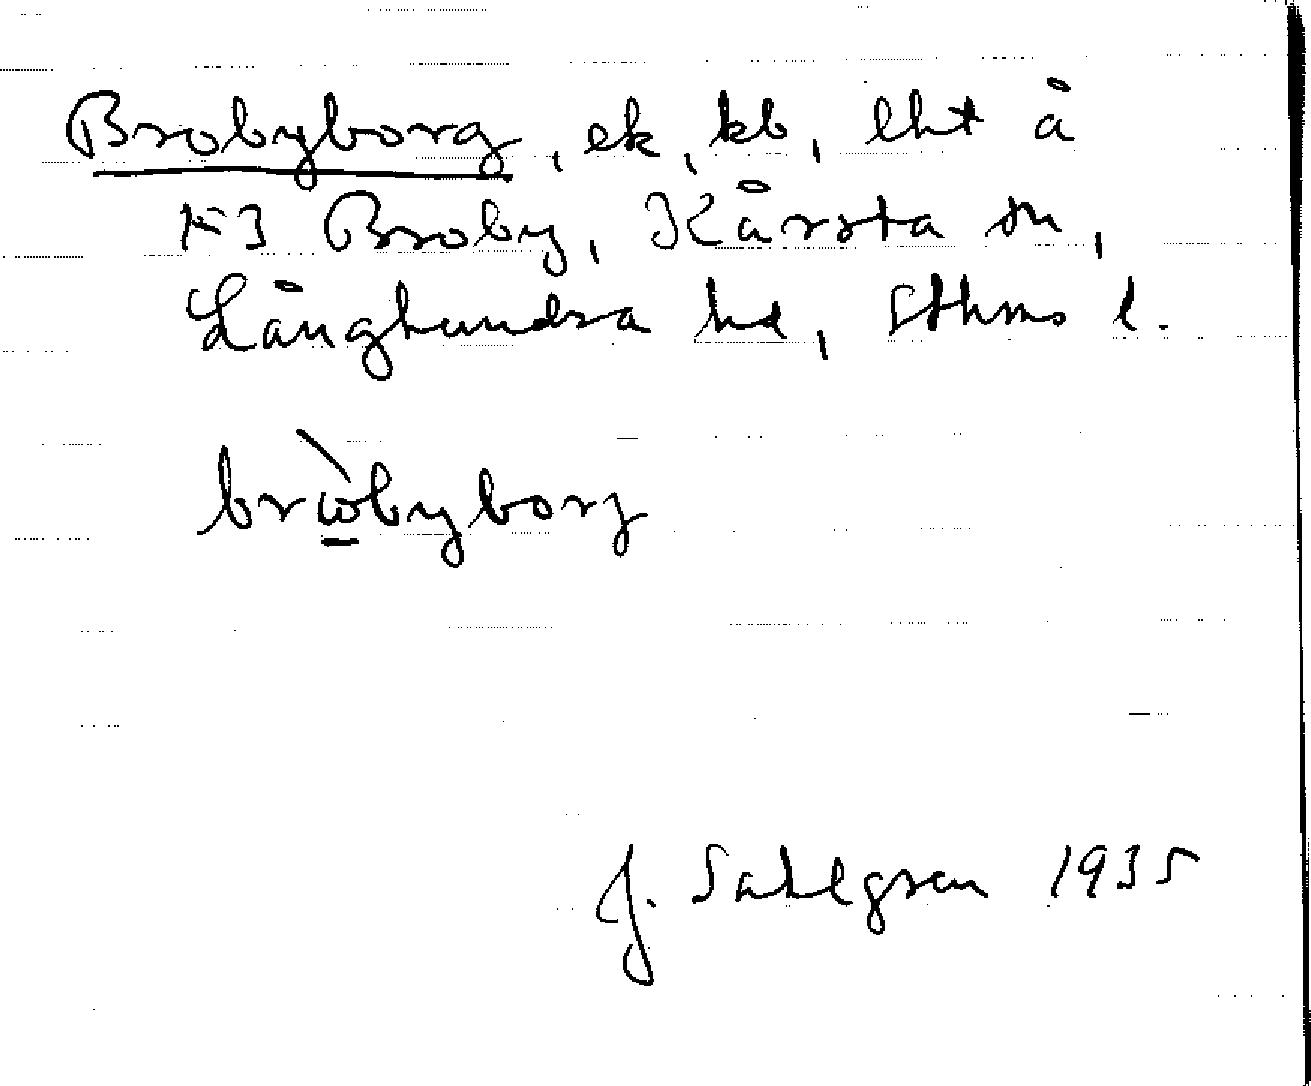 Brobyborg, ek, kb, lht å
F3 Broby, Kårsta sn,
Långhundra hd, Sthms l.
brὼbyborg
J. Sahlgren 1935